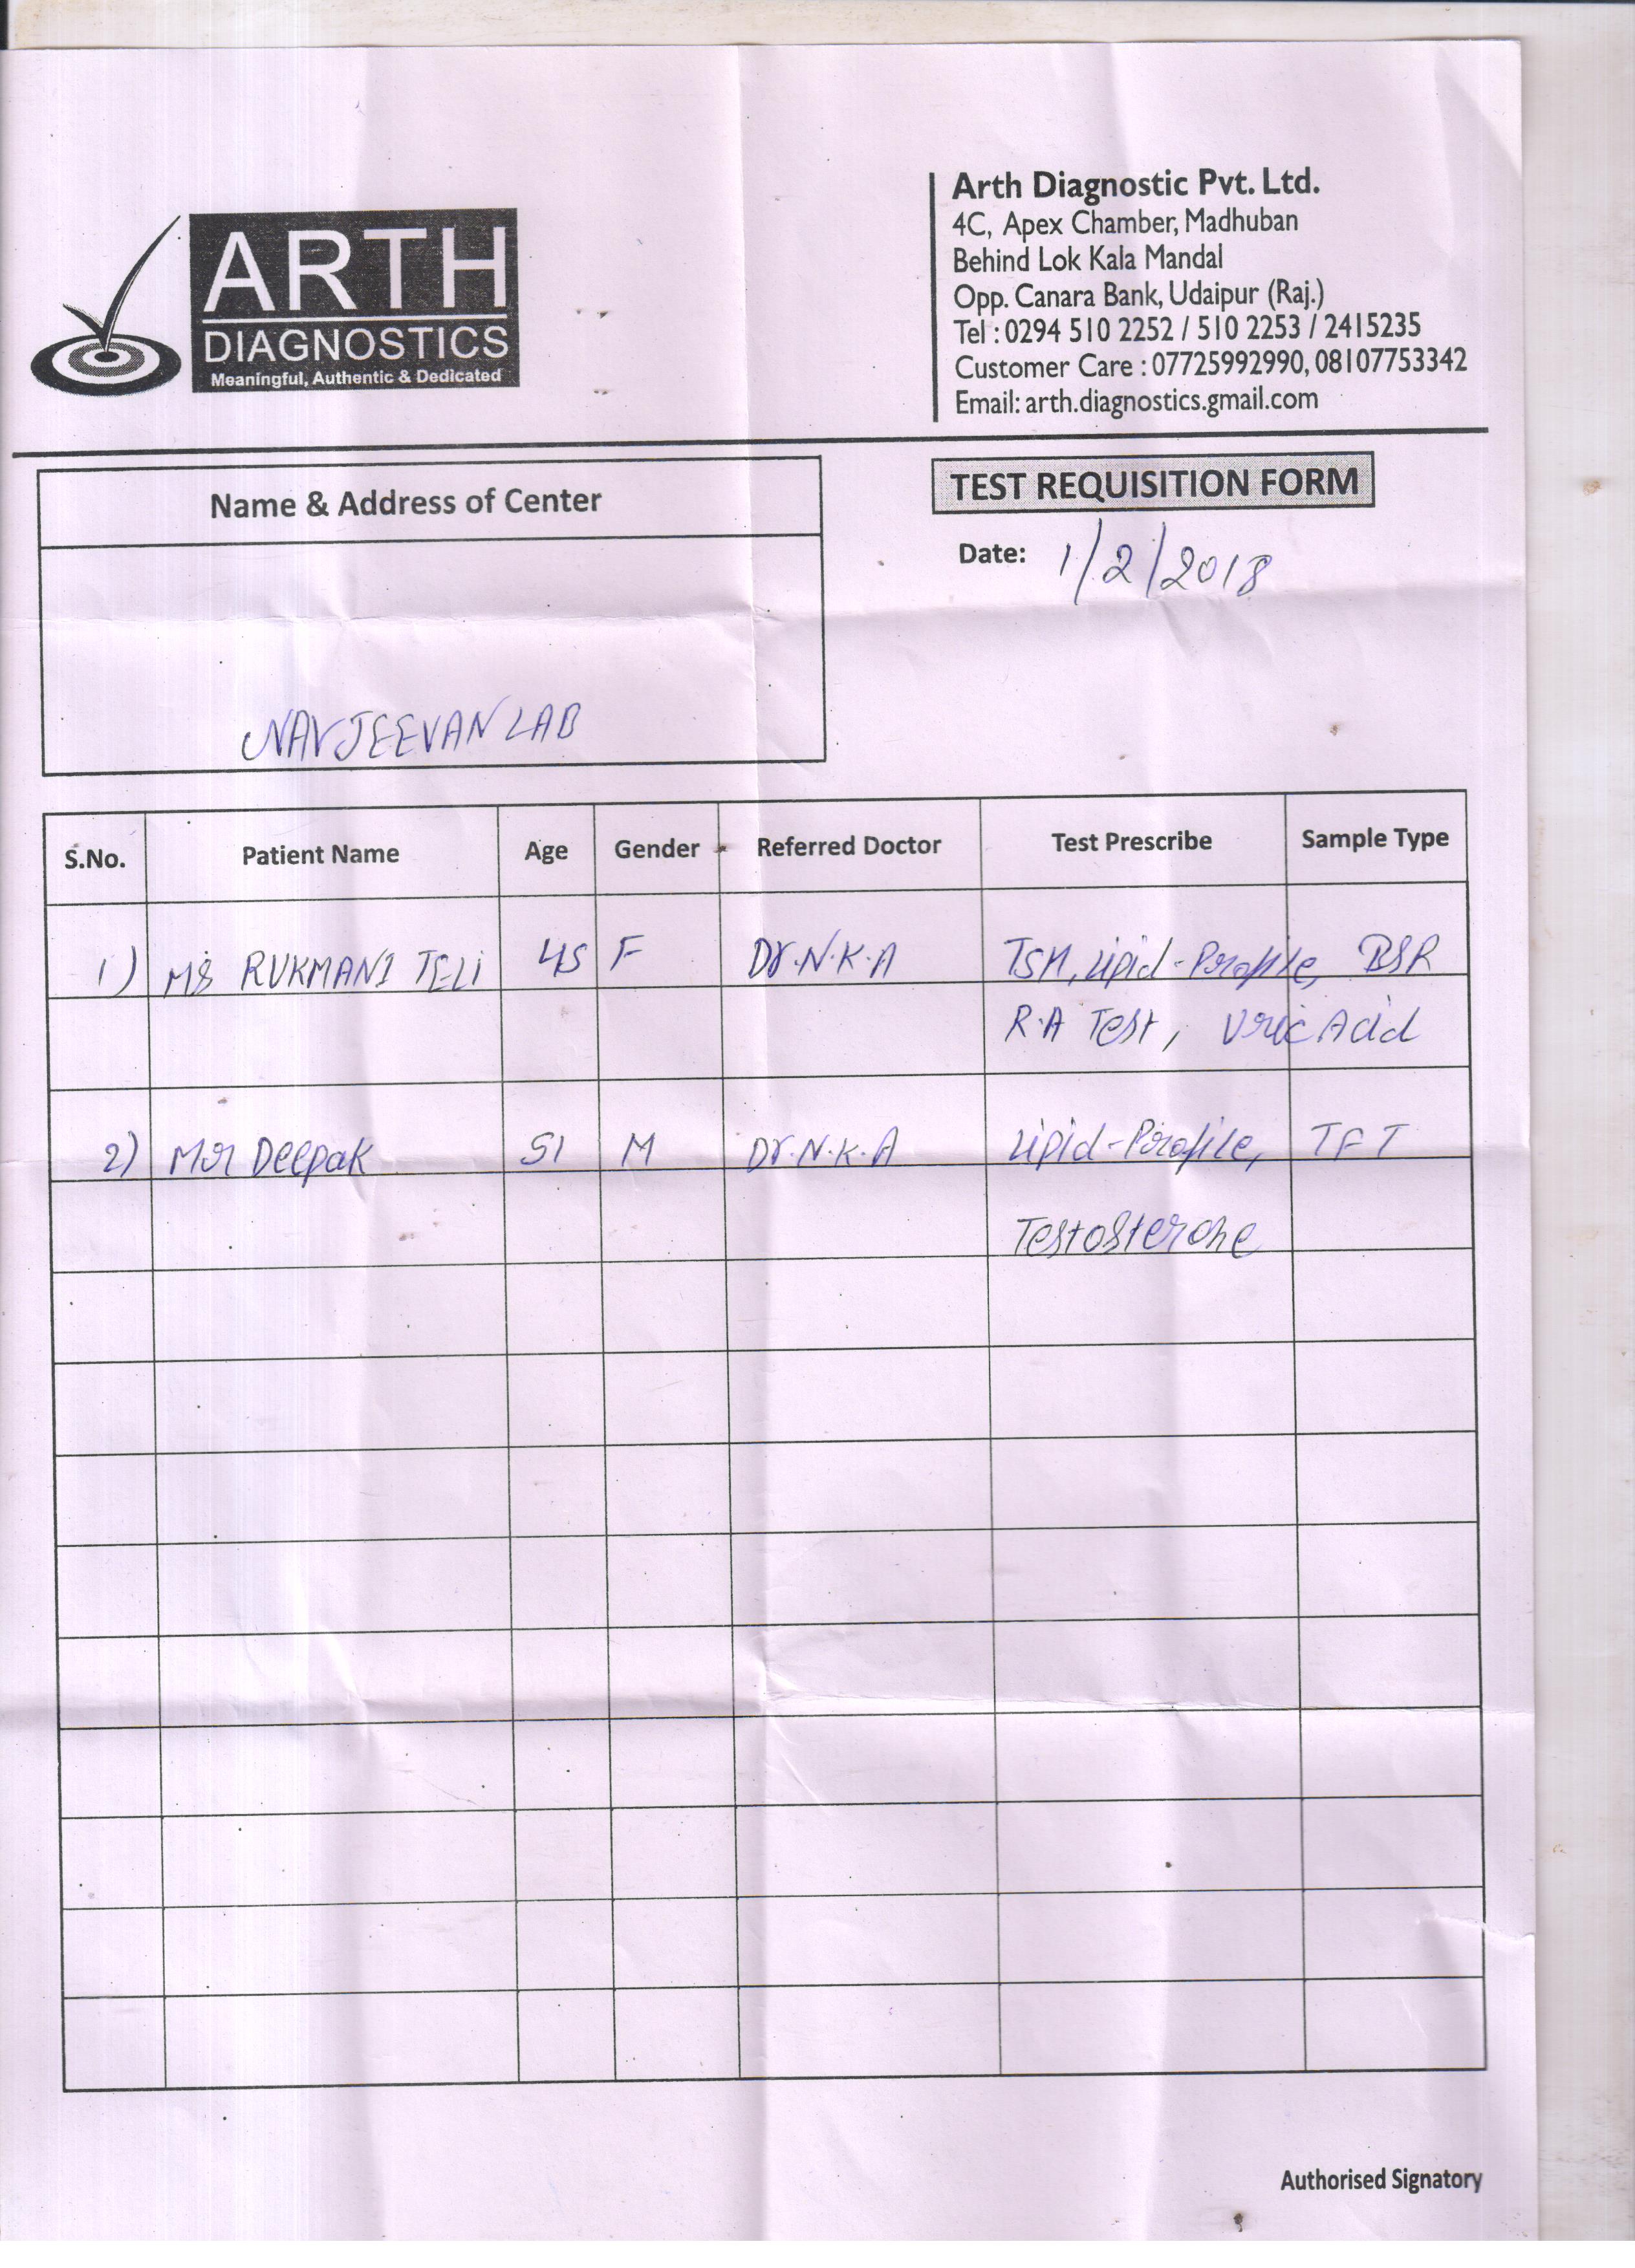 ARTH
DIAGNOSTICS
Meaningful, Authentic & Dedicated
Arth Diagnostic Pvt. Ltd.
4C, Apex Chamber, Madhuban
Behind Lok Kala Mandal
Opp. Canara Bank, Udaipur (Raj.)
Tel : 0294 510 2252 / 510 2253 / 2415235
Customer Care : 07725992990, 08107753342
Email: arth.diagnostics.gmail.com
Name & Address of Center
NAVJEEVAN LAB
TEST REQUISITION FORM
Date: 1/2/2018
S.No. Patient Name Age Gender Referred Doctor Test Prescribe Sample Type
1) Ms RUKMANI TELI 45 F Dr.N.K.A TSH, Lipid-Profile, BSR
R.A Test, Uric Acid
2) Mr Deepak 51 M Dr.N.K.A Lipid-Profile, TFT
Testosterone
Authorised Signatory